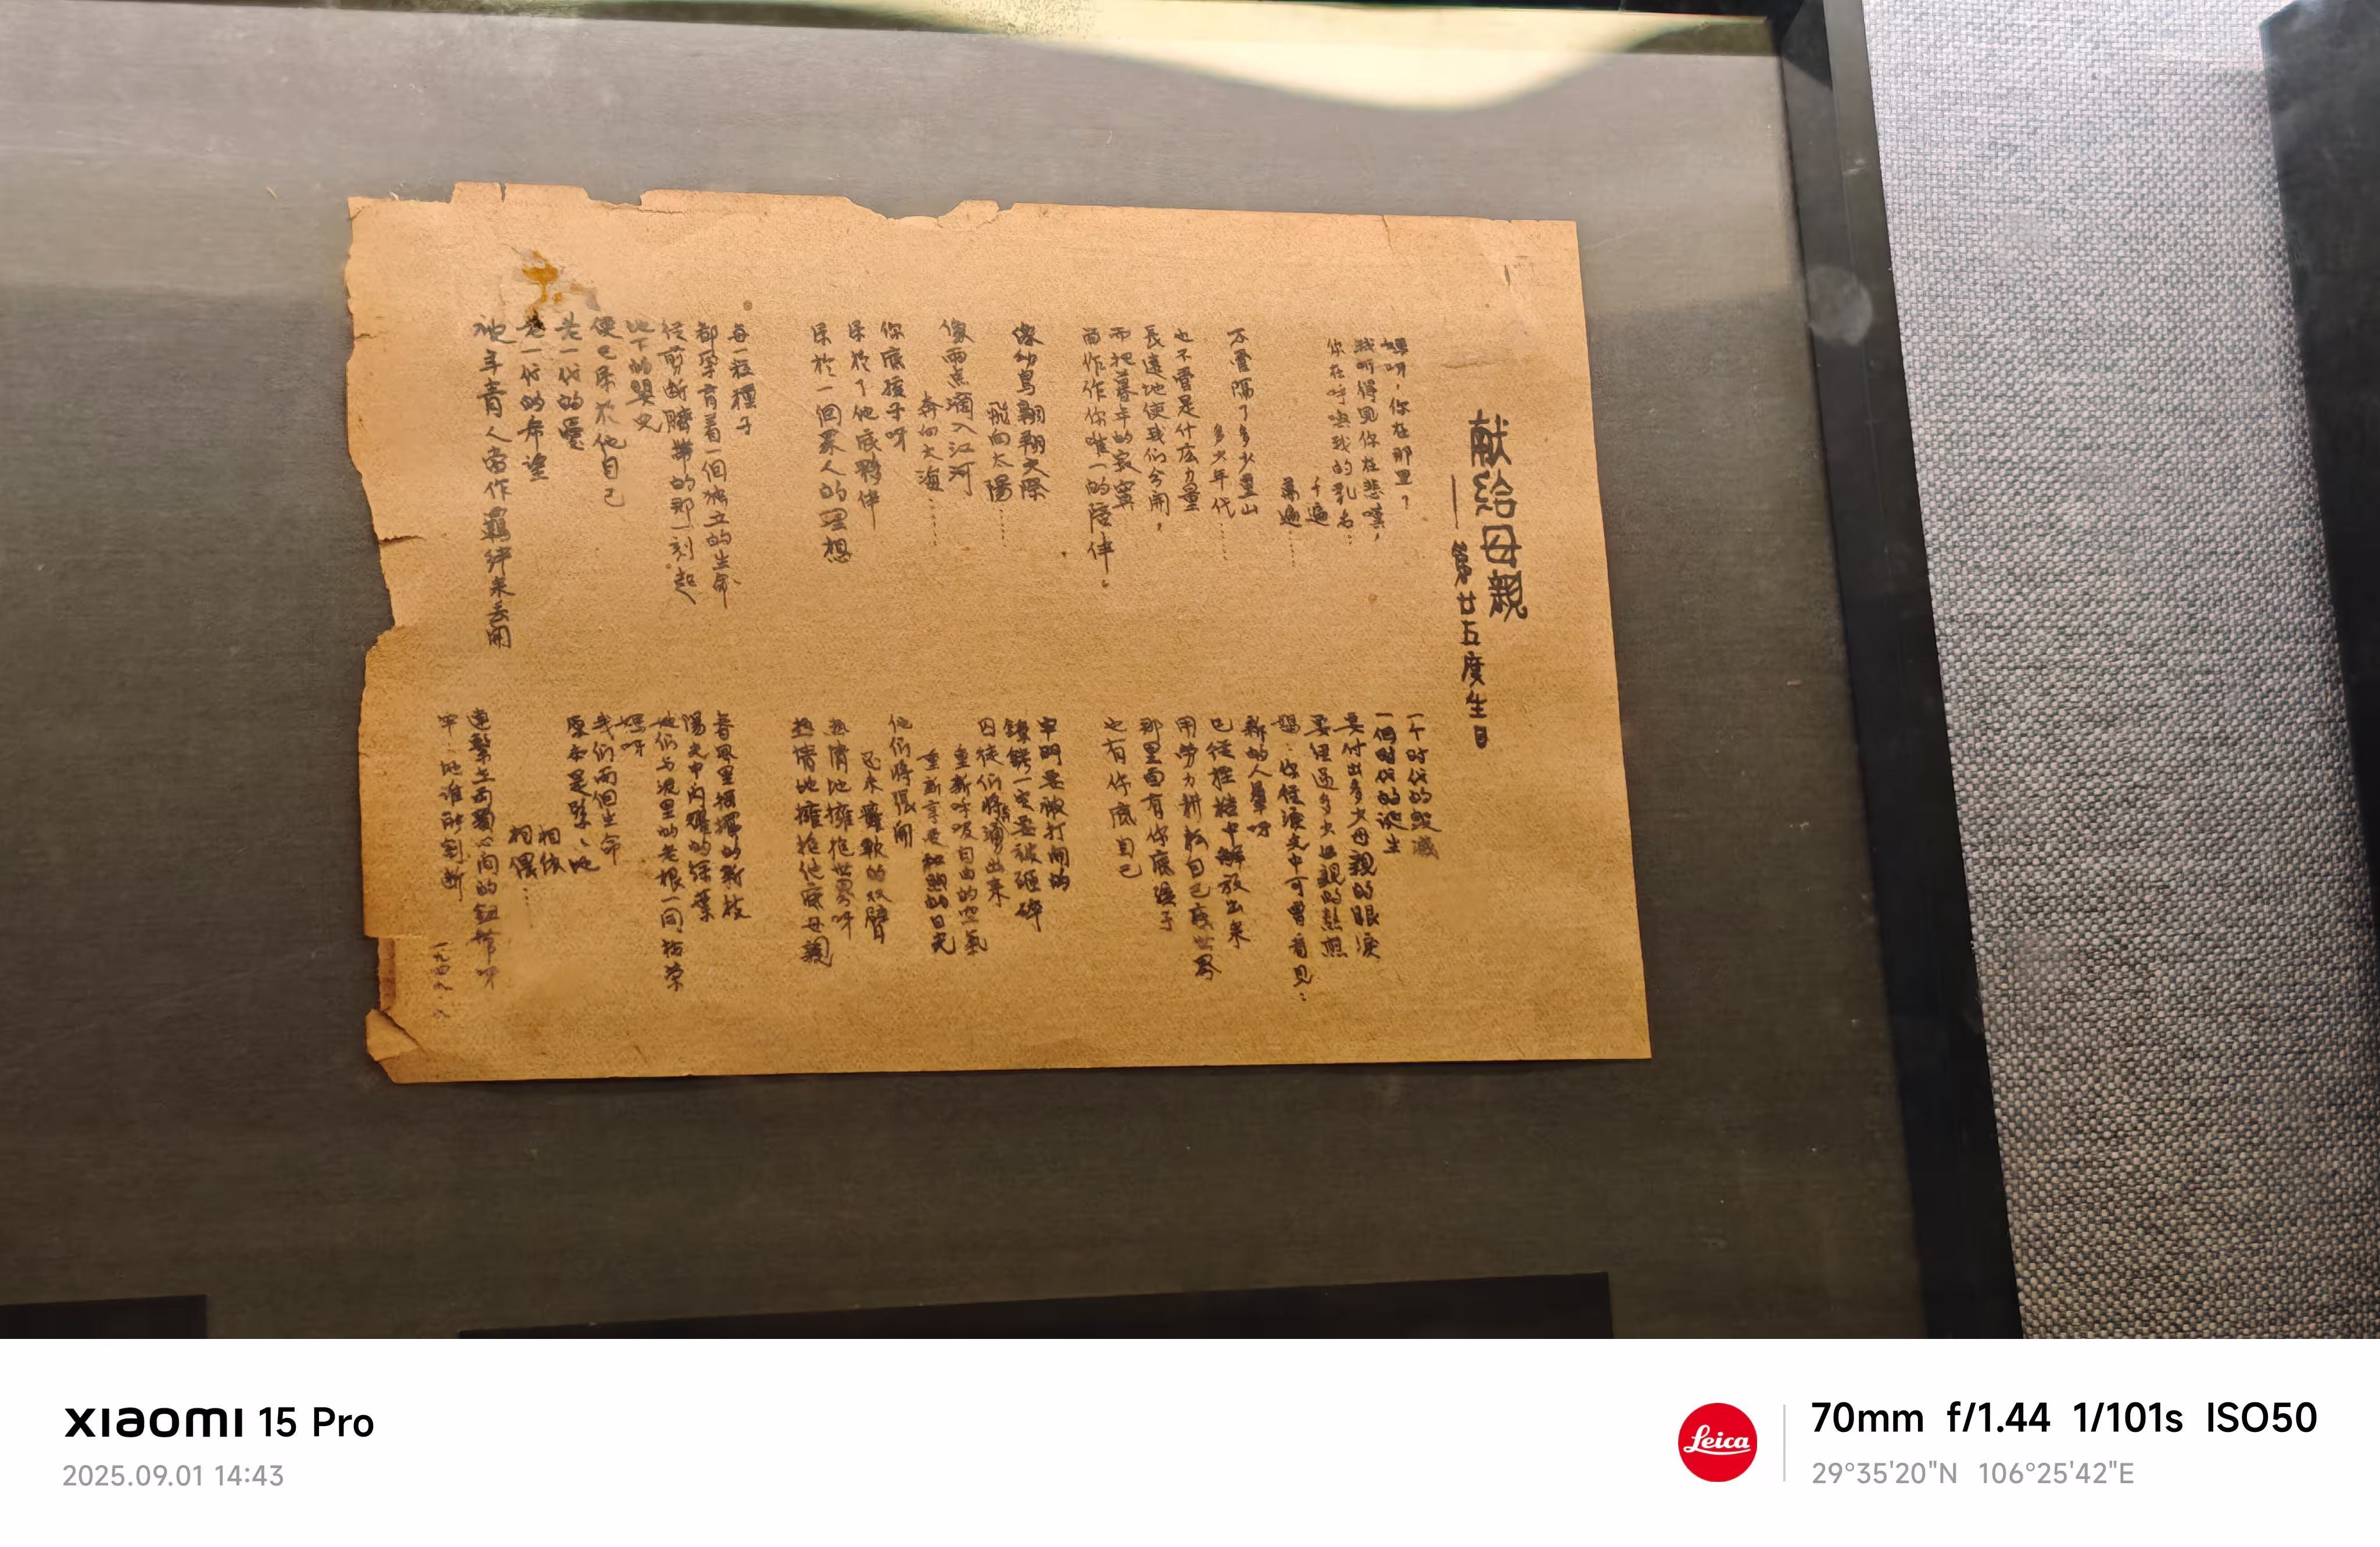 献給母親
——第廿五度生日
媽呀，你在那里？
我听得見你在悲嘆，
你在呼喚我的乳名…
千遍
萬遍……
不管隔了多少里山
多少年代……
也不管是什広力量
長遠地使我们分開，
而把暮年的寂寞
留作作你唯一的陪伴。
像幼鳥翱翔天際
飛向太陽……
像雨点滴入江河
奔向大海……
你底孩子呀
屬於了他底夥伴
屬於一個眾人的理想
每一粒種子
都孕育着一個独立的生命
從剪断臍帶的那一刻起
地下的嬰兒
便已屬於他自己
老一代的愛
老一代的希望
被年青人當作羈絆来丢開
一个時代的毀滅
一個時代的誕生
要付出多少母親的眼淚
要経過多少母親的熬煎
媽，你從淚光中可曾看見：
新的人羣呀
已從桎梏中解放出来
用勞力耕耘自己底世界
那里面有你底孩子
也有你底自己
牢門要被打開的
鐐銬一定要被砸碎
囚徒们將涌出来
重新呼吸自由的空氣
重新享受和煦的日光
他们將張開
忍来的双臂
熱情地擁抱世界呀
熱情地擁抱他底母親
春風里招揮的新枝
陽光中閃耀的深葉
她们与泥里的老根一同枯荣
媽呀
我们两個生命
原本是緊緊地
相依
相偎……
連繫在两個心間的鈕帶呀